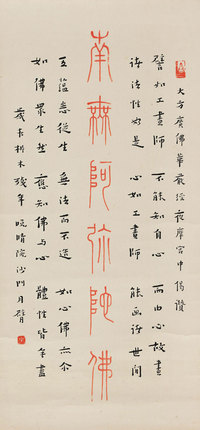 大方廣佛華嚴經夜摩宮中偈讚
譬如工畫師 不能知自心 而由心故畫
諸法性如是 心如工畫師 能画諸世間
南無阿弥陀佛
五蘊悉從生 無法而不造 如心佛亦尔
如佛眾生然 應知佛与心 體性皆無盡
歲在析木殘年 晴院沙門月臂